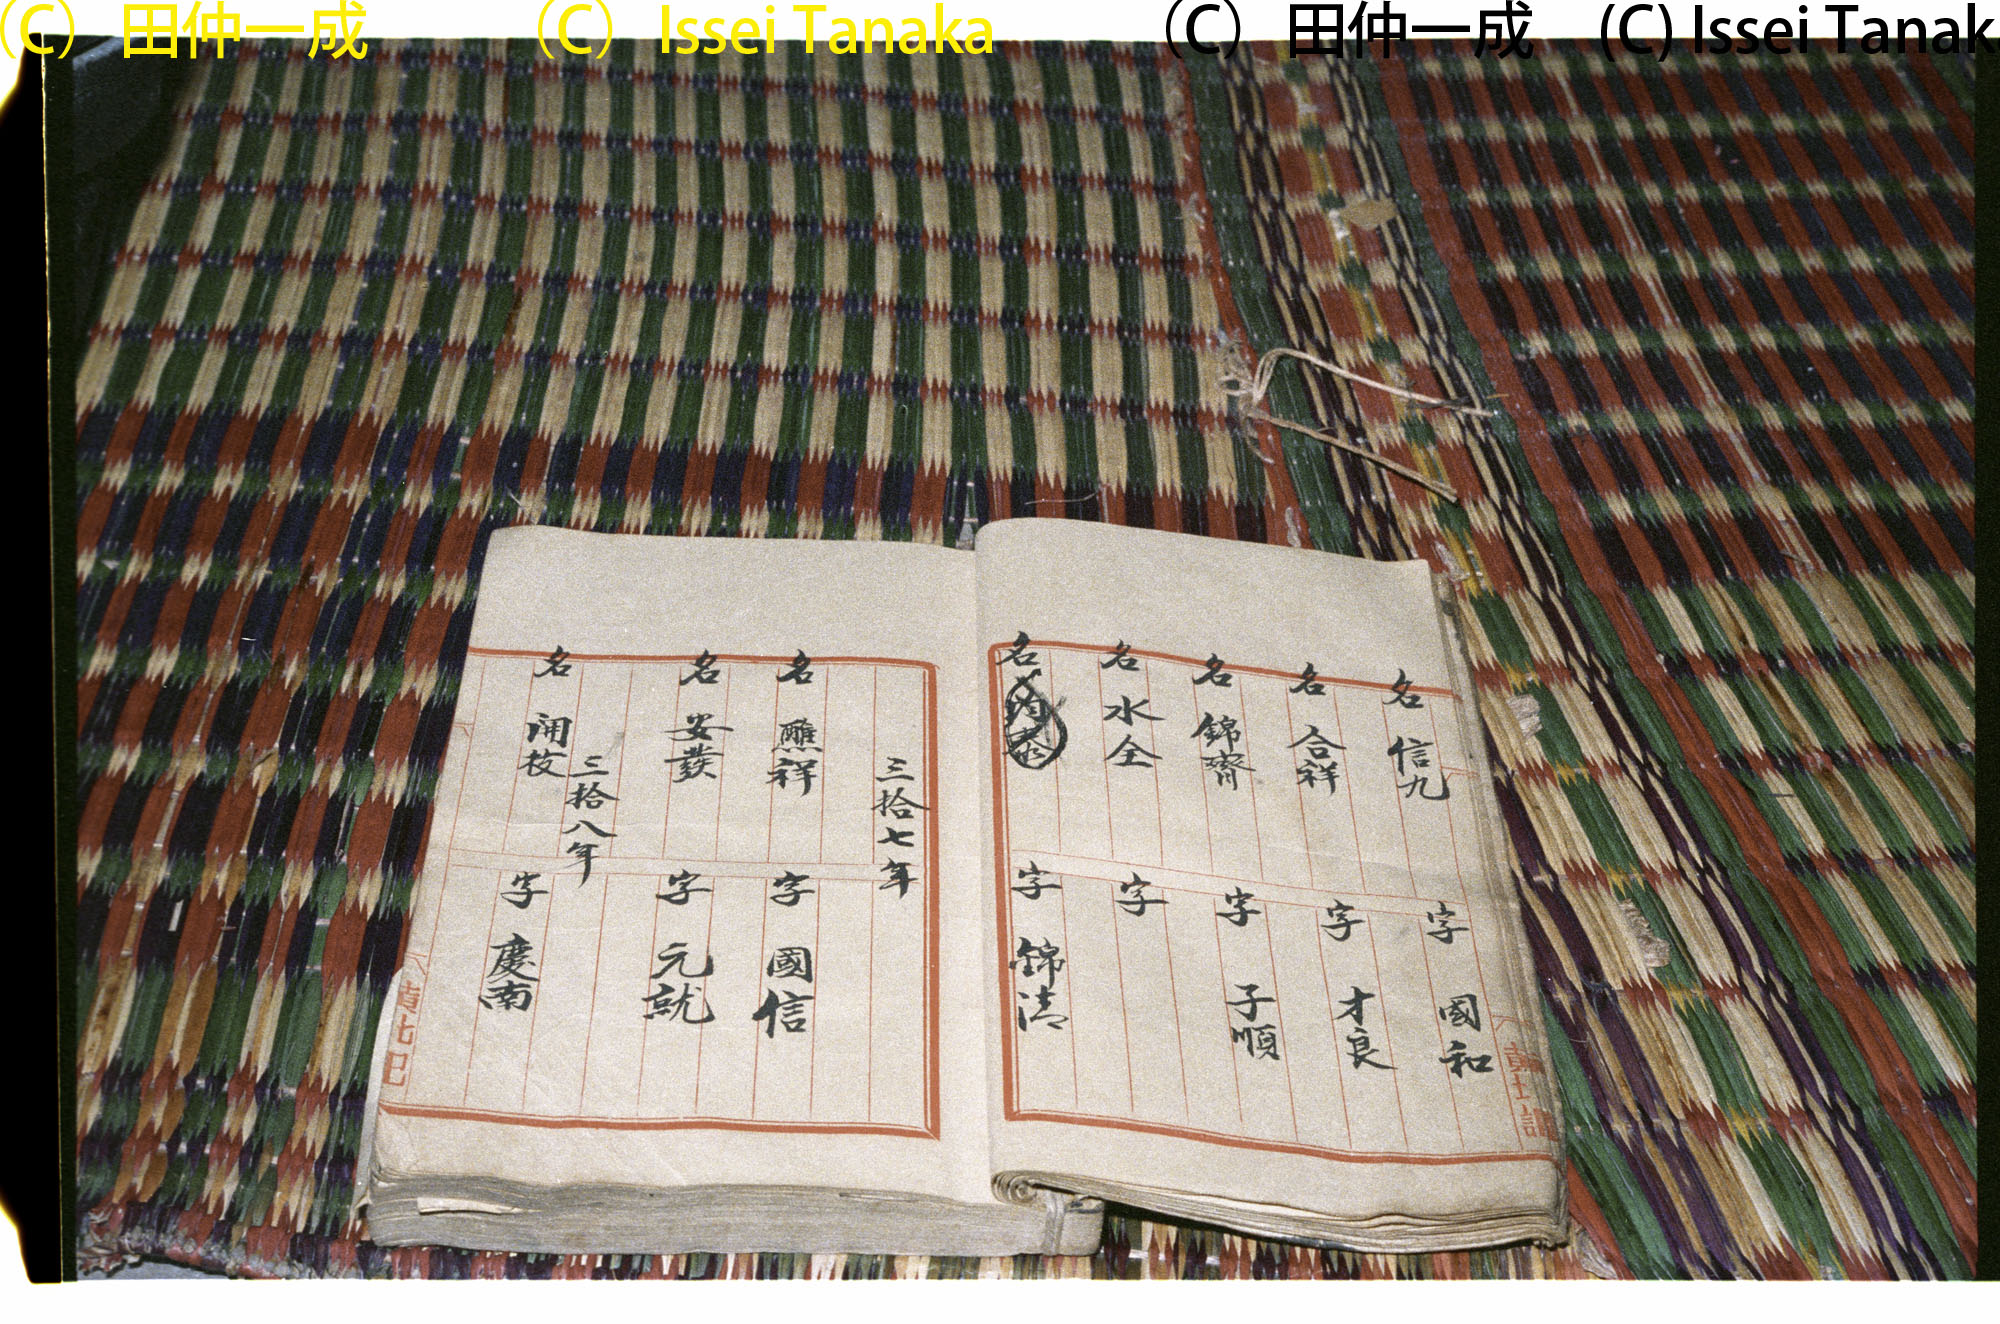 (C) 田仲一成 (C) Issei Tanaka (C) 田仲一成 (C) Issei Tanak
名 信九 字 國和
名 合祥 字 才良
名 錦齊 字 子順
名 水全 字
名 字 錦清
三拾七年
名 醮祥 字 國信
名 安發 字 元就
三拾八年
名 開枝 字 慶南